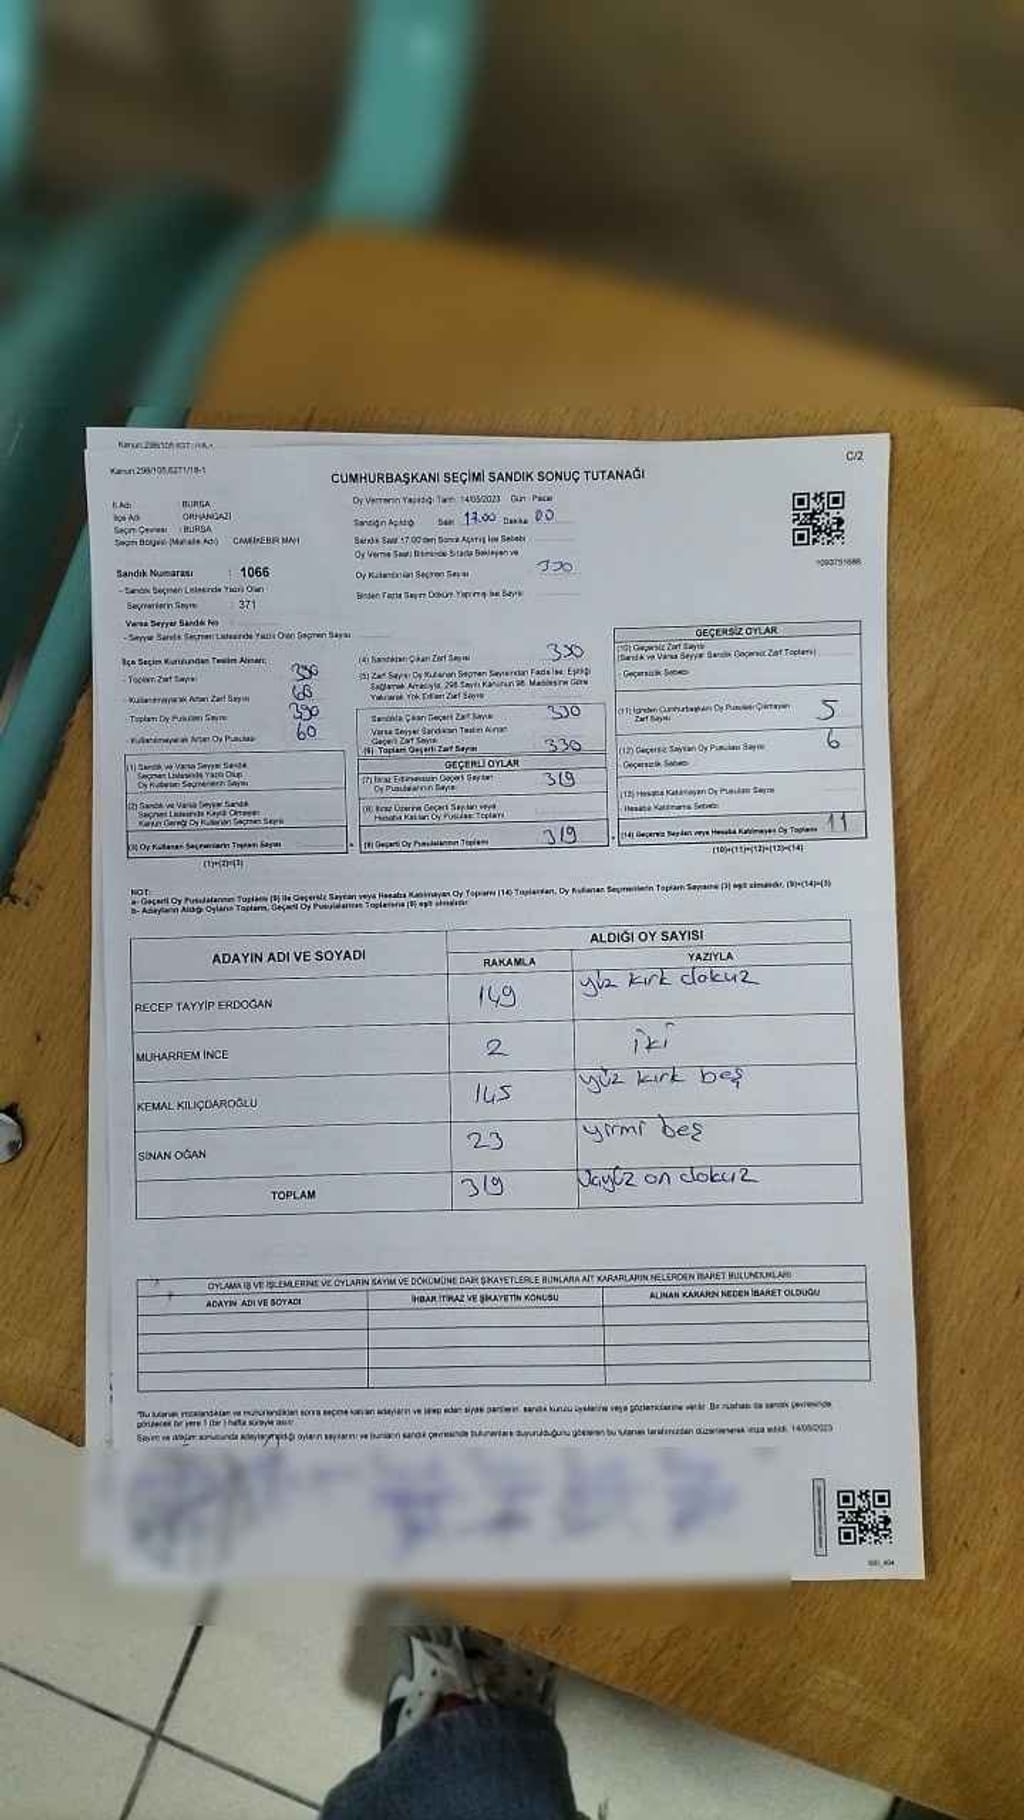 Kanun:298/105,6271/18-1
C/2
CUMHURBAŞKANI SEÇİMİ SANDIK SONUÇ TUTANAĞI
İl Adı : BURSA
İlçe Adı : ORHANGAZİ
Seçim Çevresi : BURSA
Seçim Bölgesi (Mahalle Adı) : CAMİİKEBİR MAH
Oy Vermenin Yapıldığı Tarih: 14/05/2023 Gün: Pazar
Sandığın Açıldığı Saat 17.00 Dakika 00
Sandık Saat 17.00'den Sonra Açılmış İse Sebebi
Oy Verme Saati Bitiminde Sırada Bekleyen ve
Oy Kullandırılan Seçmen Sayısı 330
Birden Fazla Sayım Döküm Yapılmış İse Sayısı
Sandık Numarası : 1066
- Sandık Seçmen Listesinde Yazılı Olan
Seçmenlerin Sayısı : 371
Varsa Seyyar Sandık No
- Seyyar Sandık Seçmen Listesinde Yazılı Olan Seçmen Sayısı
İlçe Seçim Kurulundan Teslim Alınan;
- Toplam Zarf Sayısı
- Kullanılmayarak Artan Zarf Sayısı
- Toplam Oy Pusulası Sayısı 390
- Kullanılmayarak Artan Oy Pusulası 60
(1) Sandık ve Varsa Seyyar Sandık
Seçmen Listesinde Yazılı Olup
Oy Kullanan Seçmenlerin Sayısı
(2) Sandık ve Varsa Seyyar Sandık
Seçmen Listesinde Kayıtlı Olmayan
Kanun Gereği Oy Kullanan Seçmen Sayısı
(3) Oy Kullanan Seçmenlerin Toplam Sayısı
(1)+(2)=(3)
(4) Sandıktan Çıkan Zarf Sayısı 330
(5) Zarf Sayısı Oy Kullanan Seçmen Sayısından Fazla İse; Eşitliği
Sağlamak Amacıyla, 298 Sayılı Kanunun 98. Maddesine Göre
Yakılarak Yok Edilen Zarf Sayısı
Sandıkta Çıkan Geçerli Zarf Sayısı 330
Varsa Seyyar Sandıktan Teslim Alınan
Geçerli Zarf Sayısı
(6) Toplam Geçerli Zarf Sayısı 330
GEÇERLİ OYLAR
(7) İtiraz Edilmeksizin Geçerli Sayılan
Oy Pusulalarının Sayısı 319
(8) İtiraz Üzerine Geçerli Sayılan veya
Hesaba Katılan Oy Pusulası Toplamı
(9) Geçerli Oy Pusulalarının Toplamı 319
GEÇERSİZ OYLAR
(10) Geçersiz Zarf Sayısı
(Sandık ve Varsa Seyyar Sandık Geçersiz Zarf Toplamı)
Geçersizlik Sebebi
(11) İçinden Cumhurbaşkanı Oy Pusulası Çıkmayan
Zarf Sayısı 5
(12) Geçersiz Sayılan Oy Pusulası Sayısı 6
Geçersizlik Sebebi
(13) Hesaba Katılmayan Oy Pusulası Sayısı
Hesaba Katılmama Sebebi
(14) Geçersiz Sayılan veya Hesaba Katılmayan Oy Toplamı 11
(10)+(11)+(12)+(13)=(14)
NOT:
a- Geçerli Oy Pusulalarının Toplamı (9) ile Geçersiz Sayılan veya Hesaba Katılmayan Oy Toplamı (14) Toplamları, Oy Kullanan Seçmenlerin Toplam Sayısına (3) eşit olmalıdır, (9)+(14)=(3)
b- Adayların Aldığı Oyların Toplamı, Geçerli Oy Pusulalarının Toplamına (9) eşit olmalıdır
ADAYIN ADI VE SOYADI
ALDIĞI OY SAYISI
RAKAMLA YAZIYLA
RECEP TAYYİP ERDOĞAN 149 yüz kırk dokuz
MUHARREM İNCE 2 iki
KEMAL KILIÇDAROĞLU 145 yüz kırk beş
SİNAN OĞAN 23 yirmi beş
TOPLAM 319 üçyüz on dokuz
OYLAMA İŞ VE İŞLEMLERİNE VE OYLARIN SAYIM VE DÖKÜMÜNE DAİR ŞİKAYETLERLE BUNLARA AİT KARARLARIN NELERDEN İBARET BULUNDUKLARI
ADAYIN ADI VE SOYADI İHBAR İTİRAZ VE ŞİKAYETİN KONUSU ALINAN KARARIN NEDEN İBARET OLDUĞU